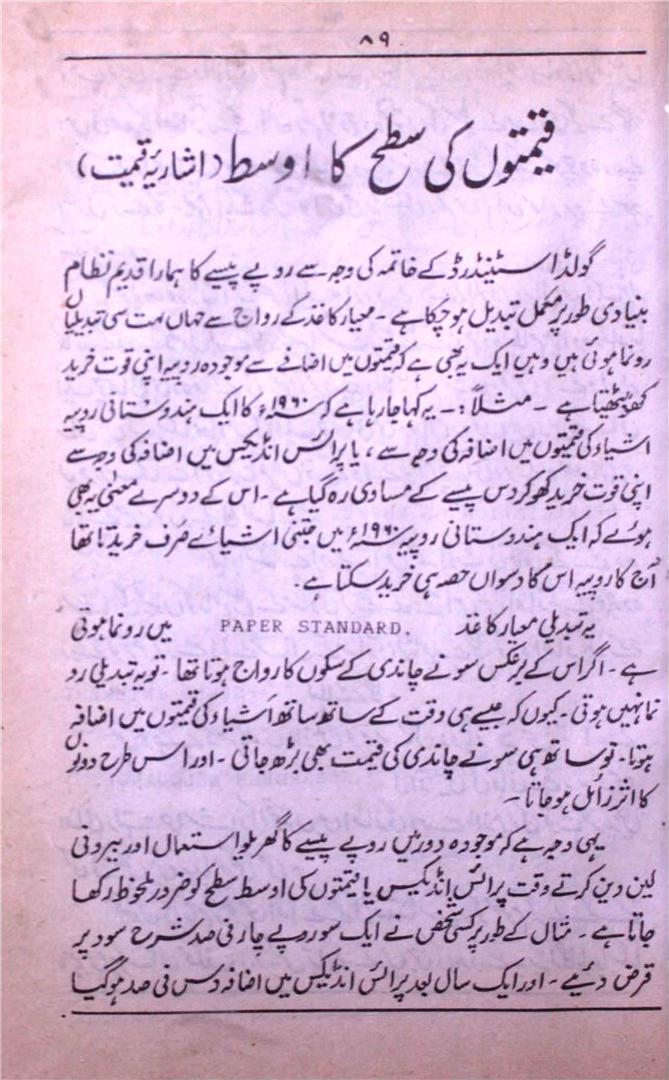 ۸۹
قیمتوں کی سطح کا اوسط (اشاریۂ قیمت)
گولڈ اسٹینڈرڈ کے خاتمہ کی وجہ سے روپے پیسے کا ہمارا قدیم نظام
بنیادی طور پر مکمل تبدیل ہو چکا ہے ۔ معیار کاغذ کے رواج سے جہاں بہت سی تبدیلیاں
رونما ہوئی ہیں وہیں ایک یہ بھی ہے کہ قیمتوں میں اضافے سے موجودہ روپیہ اپنی قوت خرید
کھو بیٹھتا ہے ۔ مثلاً :۔ یہ کہا جا رہا ہے کہ ۱۹۶۰ء کا ایک ہندوستانی روپیہ
اشیاء کی قیمتوں میں اضافہ کی وجہ سے ، یا پرائس انڈیکس میں اضافہ کی وجہ سے
اپنی قوت خرید کھو کر دس پیسے کے مساوی رہ گیا ہے ۔ اس کے دوسرے معنٰی یہ بھی
ہوئے کہ ایک ہندوستانی روپیہ ۱۹۶۰ء میں جتنی اشیائے صرف خریدتا تھا
آج کا روپیہ اس کا دسواں حصہ ہی خرید سکتا ہے ۔
یہ تبدیلی معیار کاغذ PAPER STANDARD. میں رونما ہوتی
ہے ۔ اگر اس کے برعکس سونے چاندی کے سکوں کا رواج ہوتا تھا ۔ تو یہ تبدیلی رو
نما نہیں ہوتی ۔ کیوں کہ جیسے ہی وقت کے ساتھ ساتھ اشیاء کی قیمتوں میں اضافہ
ہوتا ۔ تو ساتھ ہی سونے چاندی کی قیمت بھی بڑھ جاتی ۔ اور اس طرح دونوں
کا اثر زائل ہو جاتا ۔
یہی وجہ ہے کہ موجودہ دور میں روپے پیسے کا گھریلو استعمال اور بیرونی
لین دین کرتے وقت پرائس انڈیکس یا قیمتوں کی اوسط سطح کو ضرور ملحوظ رکھا
جاتا ہے ۔ مثال کے طور پر کسی شخص نے ایک سو روپے چار فی صد شرح سود پر
قرض دئیے ۔ اور ایک سال بعد پرائس انڈیکس میں اضافہ دس فی صد ہو گیا